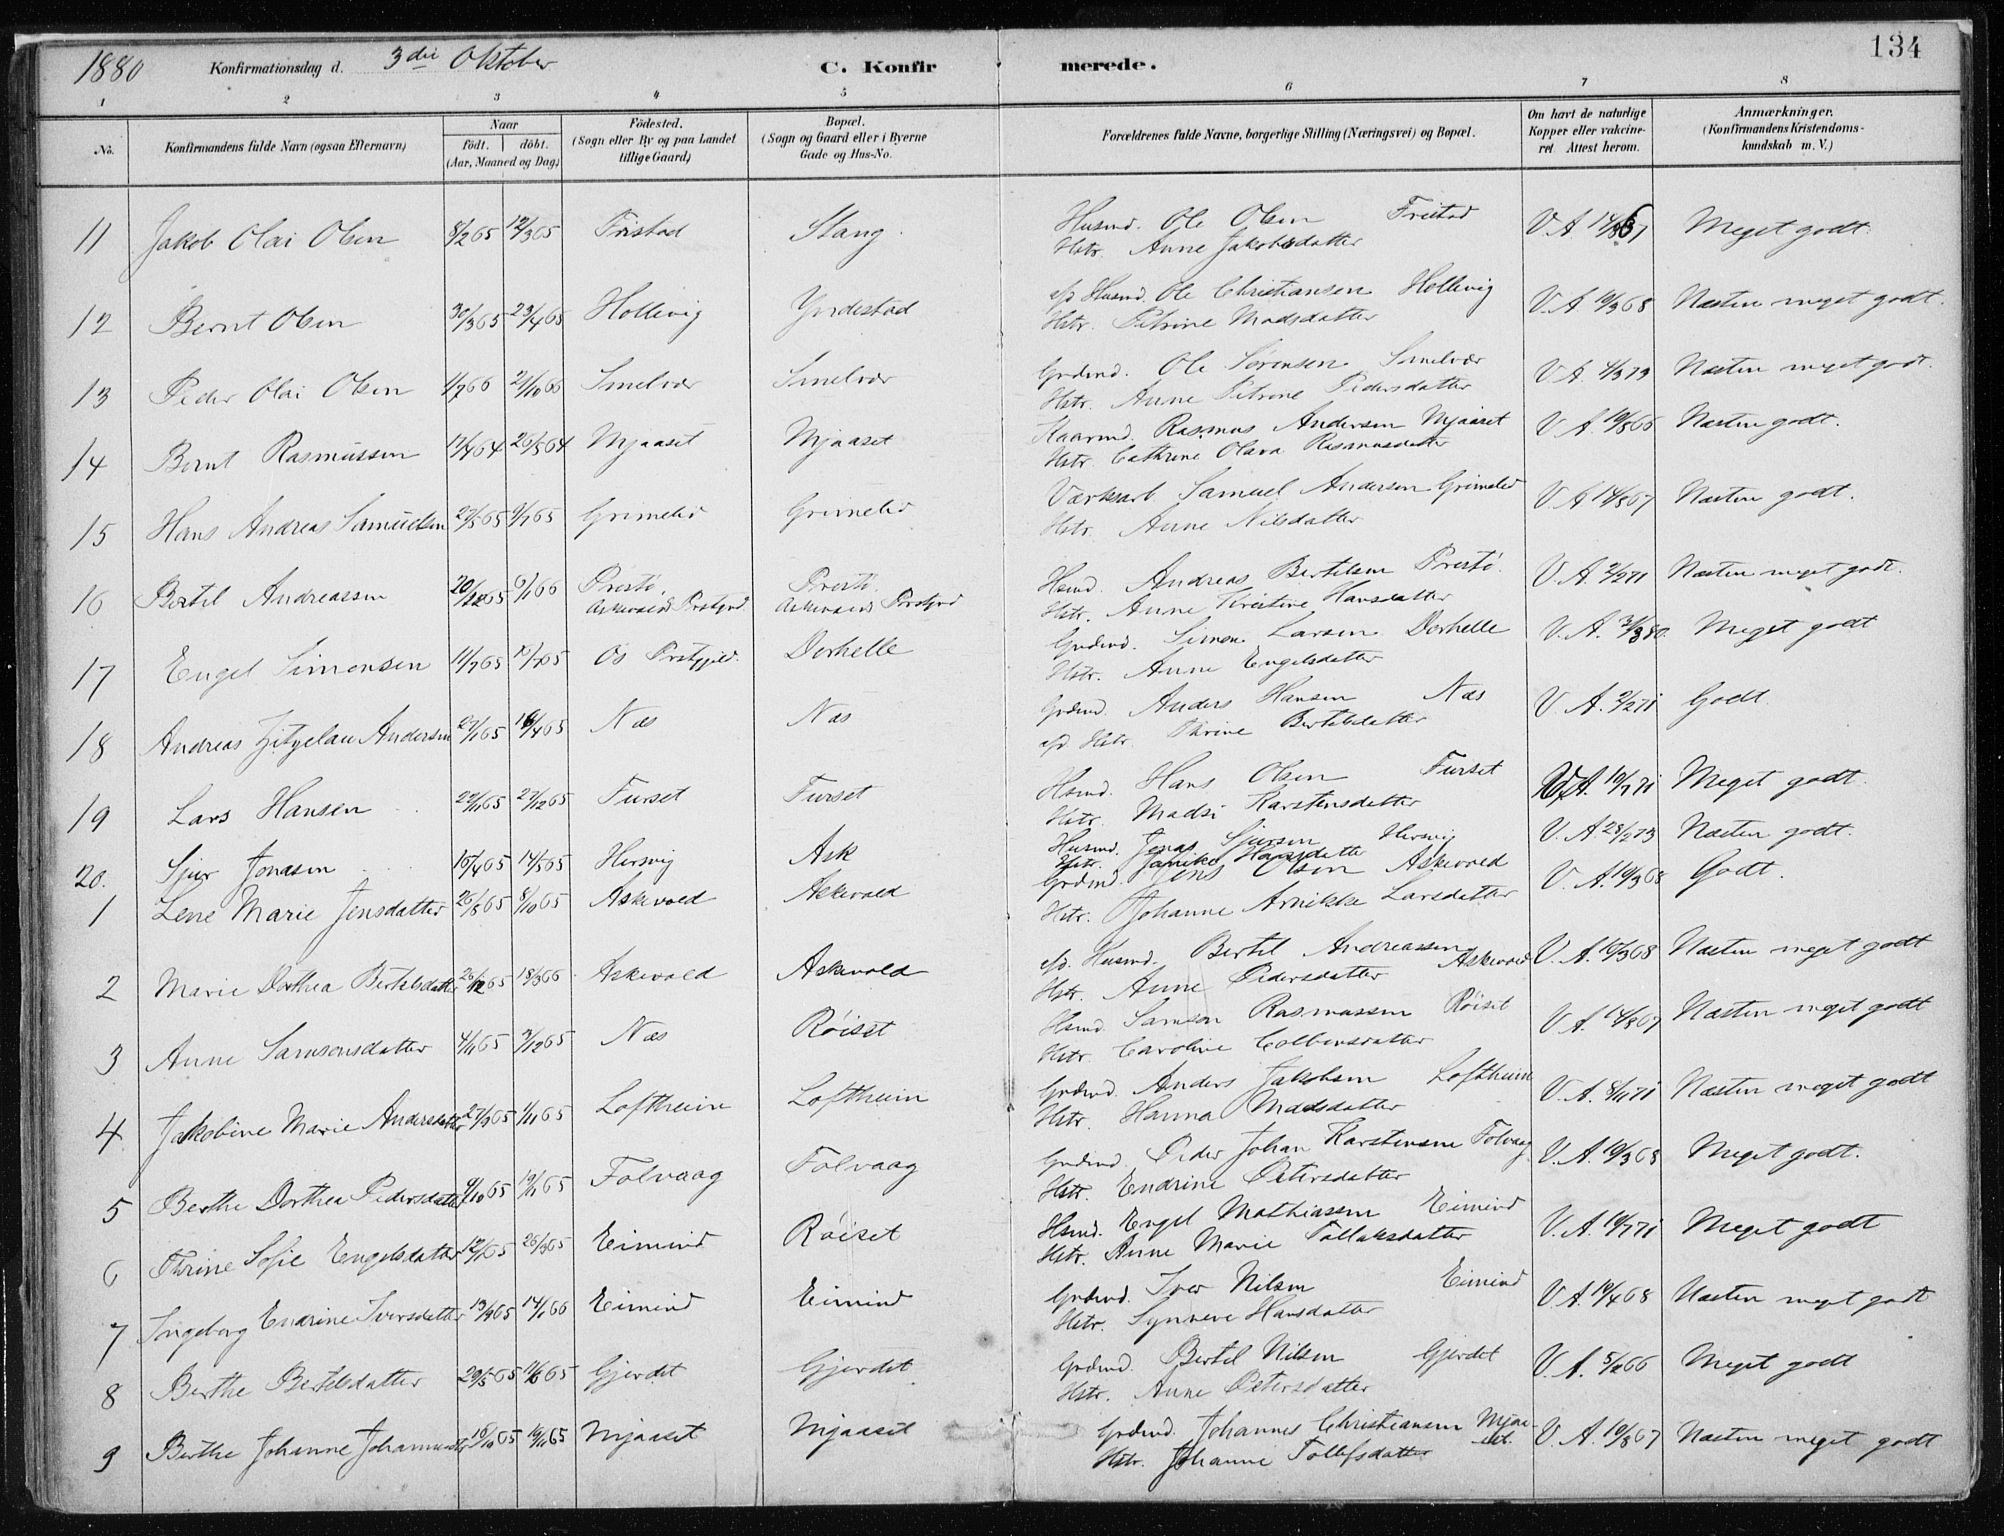 1880 Konfirmationsdag d. 3die Oktober C. Konfirmerede. 134
1 2 3 4 5 6 7 8
No. Konfirmandens fulde Navn (ogsaa Efternavn) Naar födt. döbt. (Aar, Maaned og Dag.) Födested. (Sogn eller By og paa Landet tillige Gaard.) Bopæl. (Sogn og Gaard eller i Byerne Gade og Hus-No. Forældrenes fulde Navne, borgerlige Stilling (Næringsvei) og Bopæl. Om havt de naturlige Kopper eller vakcineret Attest herom. Anmærkninger. (Konfirmandens Kristendomskundskab m. V.)
11 Jakob Olai Olsen 8/2 65 12/3 65 Fristad Stang. Husmd. Ole Olsen Fristad V. A. Meget godt.
Hstr. Anne Jakobsdatter
12 Bernt Olsen 30/3 65 23/4 65 Hollevig Yndestad afd Husmd. Ole Christiansen Hollevig V. A. 19/3 68 Næsten meget godt.
Hstr. Petrine Madsdatter
13 Peder Olai Olsen 1/7 66 21/10 66 Smelvær Smelvær Grdmd. Ole Sörensen Smelvær V. A. 4/3 73 Næsten meget godt.
Hstr. Anne Petrine Pedersdatter
14 Bernt Rasmussen 17/4 64 26/5 64 Mjaaset Mjaaset Kaarmd. Rasmus Andersen Mjaaset V. A. 19/8 66 Næsten godt.
Hstr. Cathrine Olava Rasmusdatter
15 Hans Andreas Samuelsen 27/5 65 9/7 65 Grimelid Grimelid Værksarb Samuel Andersen Grimelid V. A. 14/8 67 Næsten godt.
Hstr. Anne Nilsdatter
16 Bertil Andreassen 20/12 65 6/1 66 Prestö, Askevolds Prstgjd. Prestö. Askevolds Prstgjd Hsmd. Andreas Bertilsen Prestö. V. A. 2/2 71 Næsten meget godt.
Hstr. Anne Kristine Hansdatter
17 Engel Simonsen 11/7 65 Os Prstgjeld. Dorhelle Grdmd. Simon Larsen Dorhelle V. A. 3/3 80. Meget godt
Hstr. Anne Engelsdatter
18 Andreas Andersen 27/1 65 16/4 65 Næs Næs Grdmd. Anders Hansen Næs V. A. 2/2 71 Godt.
afd Hstr. Thrine Bertilsdatter
19 Lars Hansen 22/11 65 27/12 65 Furset Furset Hsmd. Hans Olsen Furset V. A. 19/7 71 Meget godt.
Hstr. Madsi Karstensdatter
20. Sjur Jonassen 16/4 65 14/5 65 Hersvig Ask Husmd. Jonas Sjursen Hersvig V. A. 28/2 73 Næsten godt.
Hstr. Jannike Hansdatter
1 Lene Marie Jensdatter 26/8 65 8/10 65 Askevold Askevold Grdmd. Jens Olsen Askevold V. A. 19/3 68 Godt.
Hstr. Johanne Arnikke Larsdatter
2 Marie Dorthea Bertelsdatter 26/12 65 18/3 66 Askevold Askevold afd. Husmd. Bertel Andreassen Askevold V. A. 19/3 68 Næsten meget godt
Hstr. Anne Pedersdatter
3 Anne Samsonsdatter 4/11 65 3/12 65 Næs Röiset Hsmd. Samson Rasmussen Röiset V. A. 14/8 67 Næsten meget godt
Hstr. Caroline Colbensdatter
4 Jakobine Marie Andersdatter 27/9 65 1/11 65 Loftheim Loftheim Grdmd Anders Jakobsen Loftheim V. A. 8/11 71 Næsten meget godt
Hstr. Hanna Madsdatter
5 Berthe Dorthea Pedersdatter 9/10 65 19/11 65 Folvaag Folvaag Grdmd Peder Johan Karstensen Folvaag V. A. 19/3 68 Meget godt.
Hstr. Endrine Petersdatter
6 Thrine Sofie Engelsdatter 12/1 65 26/3 65 Eimind Röiset Hsmd. Engel Mathiassen Eimind V. A. 19/7 71 Meget godt
Hstr. Anne Marie Tollaksdatter
7 Ingeborg Endrine Iversdatter 13/9 65 14/1 66 Eimind Eimind Grdmd. Iver Nilsen Eimind V. A. 19/4 68 Næsten meget godt
Hstr. Synneve Hansdatter
8 Berthe Bertelsdatter 29/5 65 11/6 65 Gjerdet Gjerdet. Grdmd. Bertel Nilsen Gjerdet V. A. Meget godt
Hstr. Anne Petersdatter
9 Berthe Johanne Johannesdtr 16/10 65 19/11 65 Mjaaset Mjaaset Grdmd. Johannes Christiansen Mjaaset. V. A. 19/8 67 Næsten meget godt
Hstr. Johanne Tollefsdatter